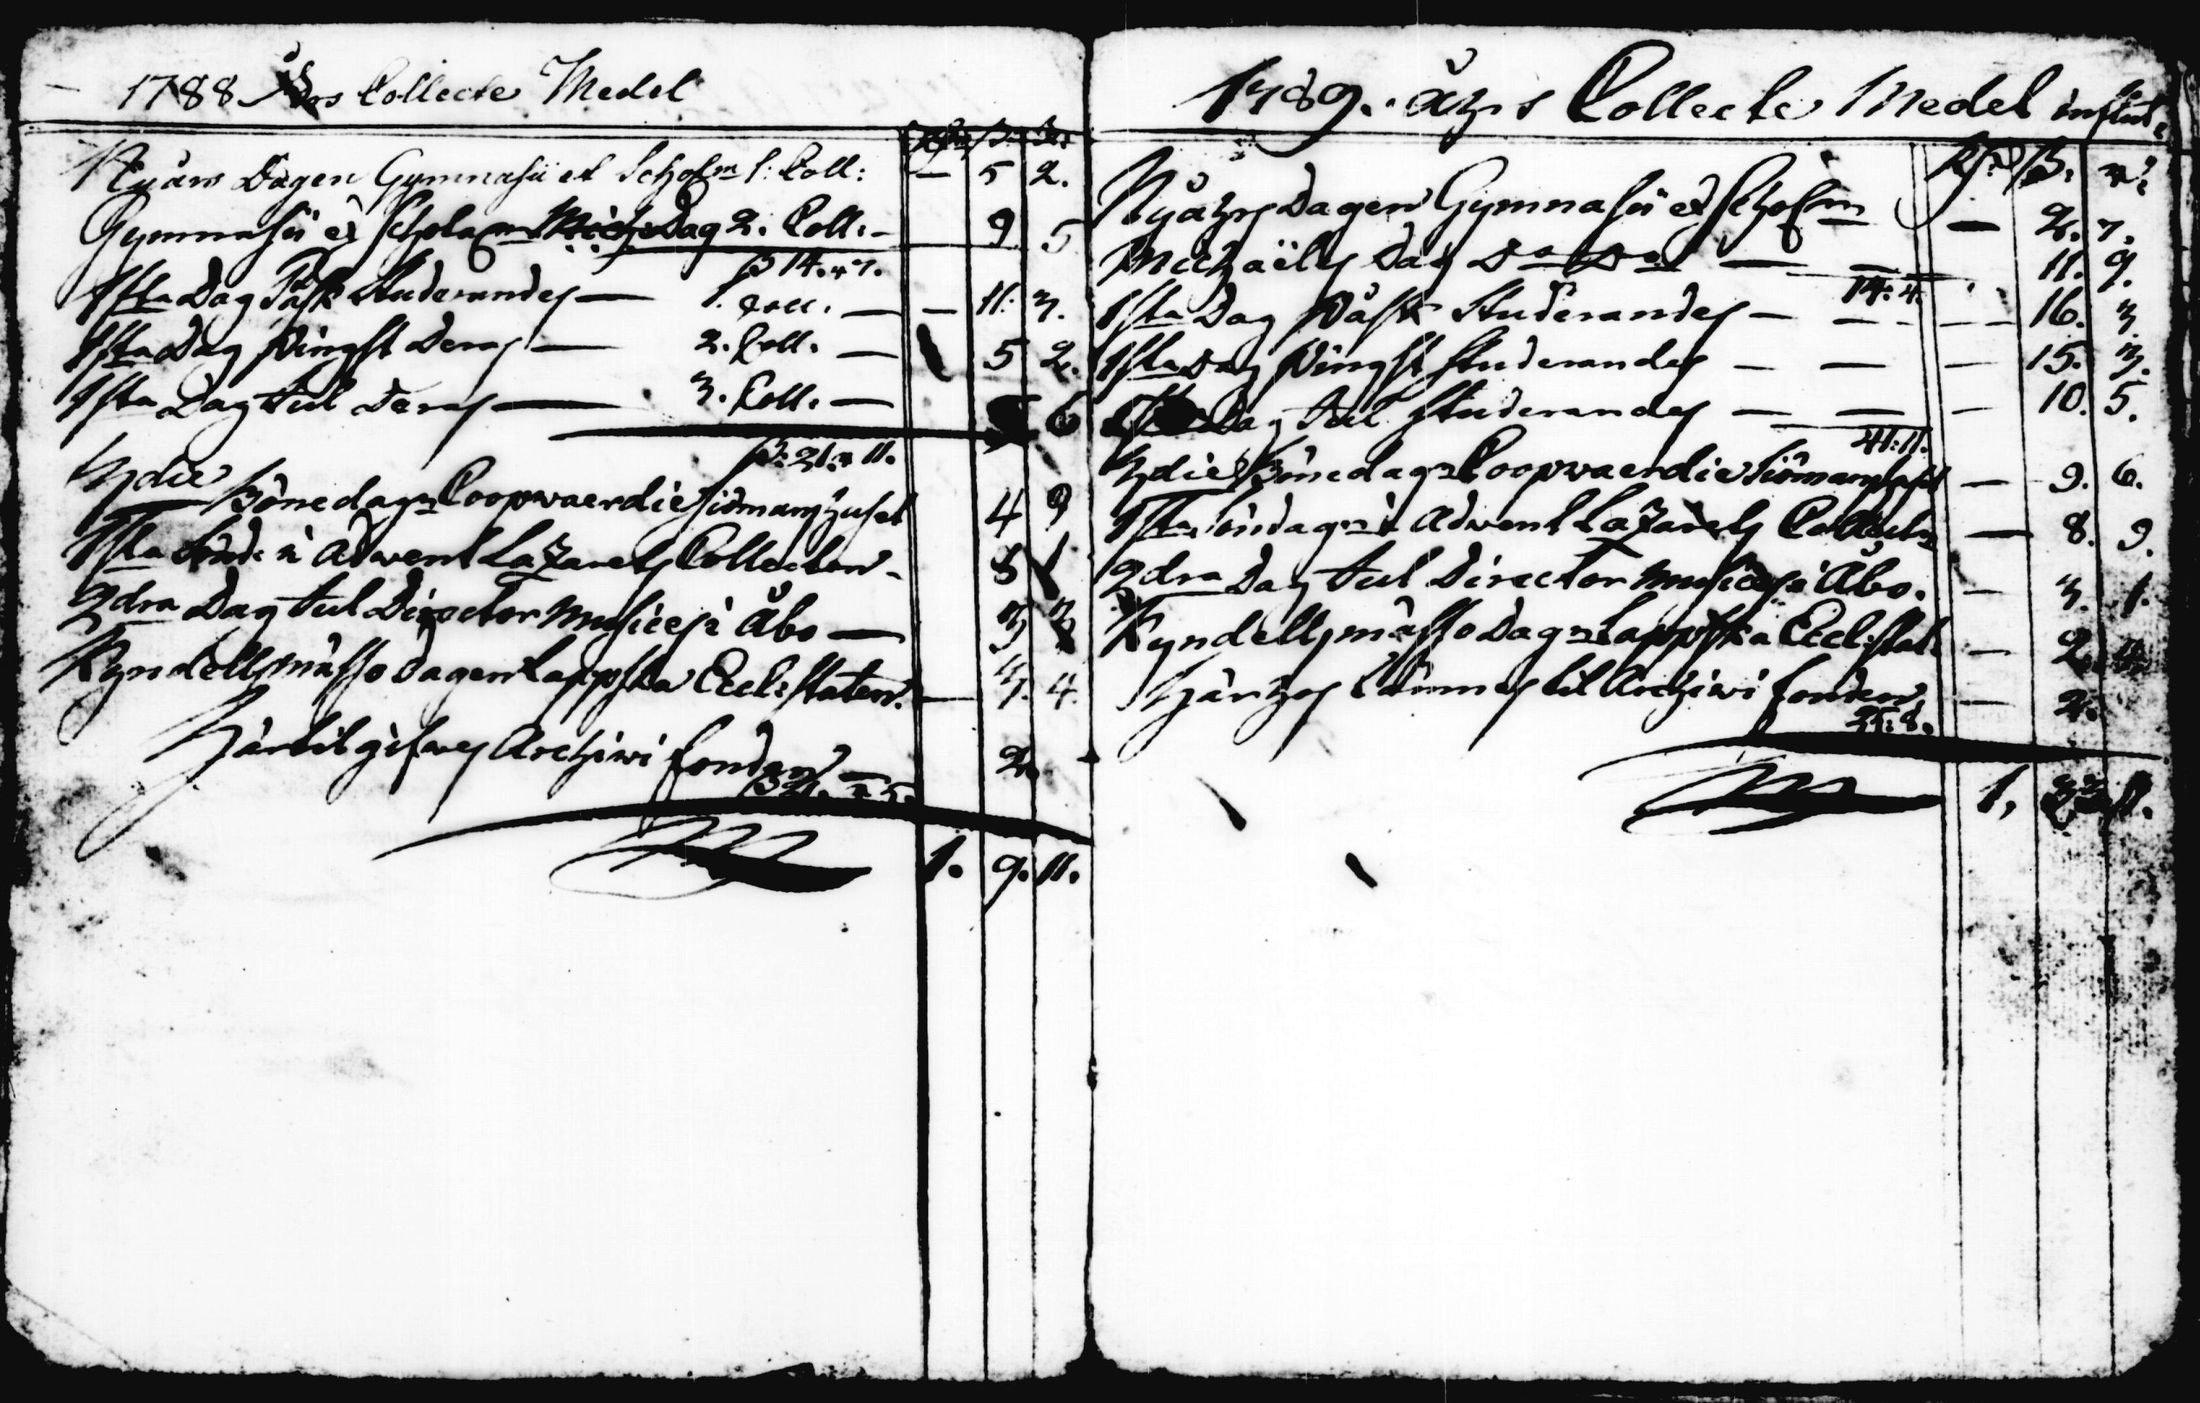 1788 Års Collecte Medel
Nyårs Dagen Gymnasii et Scholm 1: Coll: — 5 2.
Gymnasii et Scholam Mich: Dag 2. Coll: — 9 5
ß 14. 7.
1sta Dag Påsk Studerandes — 1. Coll. — — 11. 3.
1sta Dag Pingst Deras — 2. Coll. — 5 2.
1sta Dag Jul Deras — 3. Coll. — 5 6
ß: 21. 11.
3die Bönedagn Coopvaerdie Siömans huset 4 9
1sta Sönd: i Advent Lazarets Collecten - 8 1
2dra Dag Jul Director Musices i Åbo — 3 3
Kyndellsmässo dagen Lappska Eccl: staten. — 3. 4.
Härtil gifwes Archiwi fonden — 2.
1. 9. 11.
1789. Åhrs Collecte Medel influt:
Rd ß. r:
Nyåhrs Dagen Gymnasii et Scholm — 2. 7.
Michaëlis Dag Do Do — — 11. 9.
14. 4.
1sta Dag Påsk Studerandes — — — 16. 3.
1sta Dag Pingst Studerandes — — — 15. 3.
Dag Jul Studerandes — — — 10. 5.
41: 11.
3die Bönedagn Coopvaerdie Siömanshuset — 9. 6.
1sta Söndagn i Advent Lazarets Collectn — 8. 9.
2dra Dag Jul Director Musices i Åbo. — 3. 1.
Kyndellsmässo Dagn Lappska Eccl: stat: — 2.
Härhos lämnes til Archiwi fonden — 2.
25. 8.
1. 33. 11.